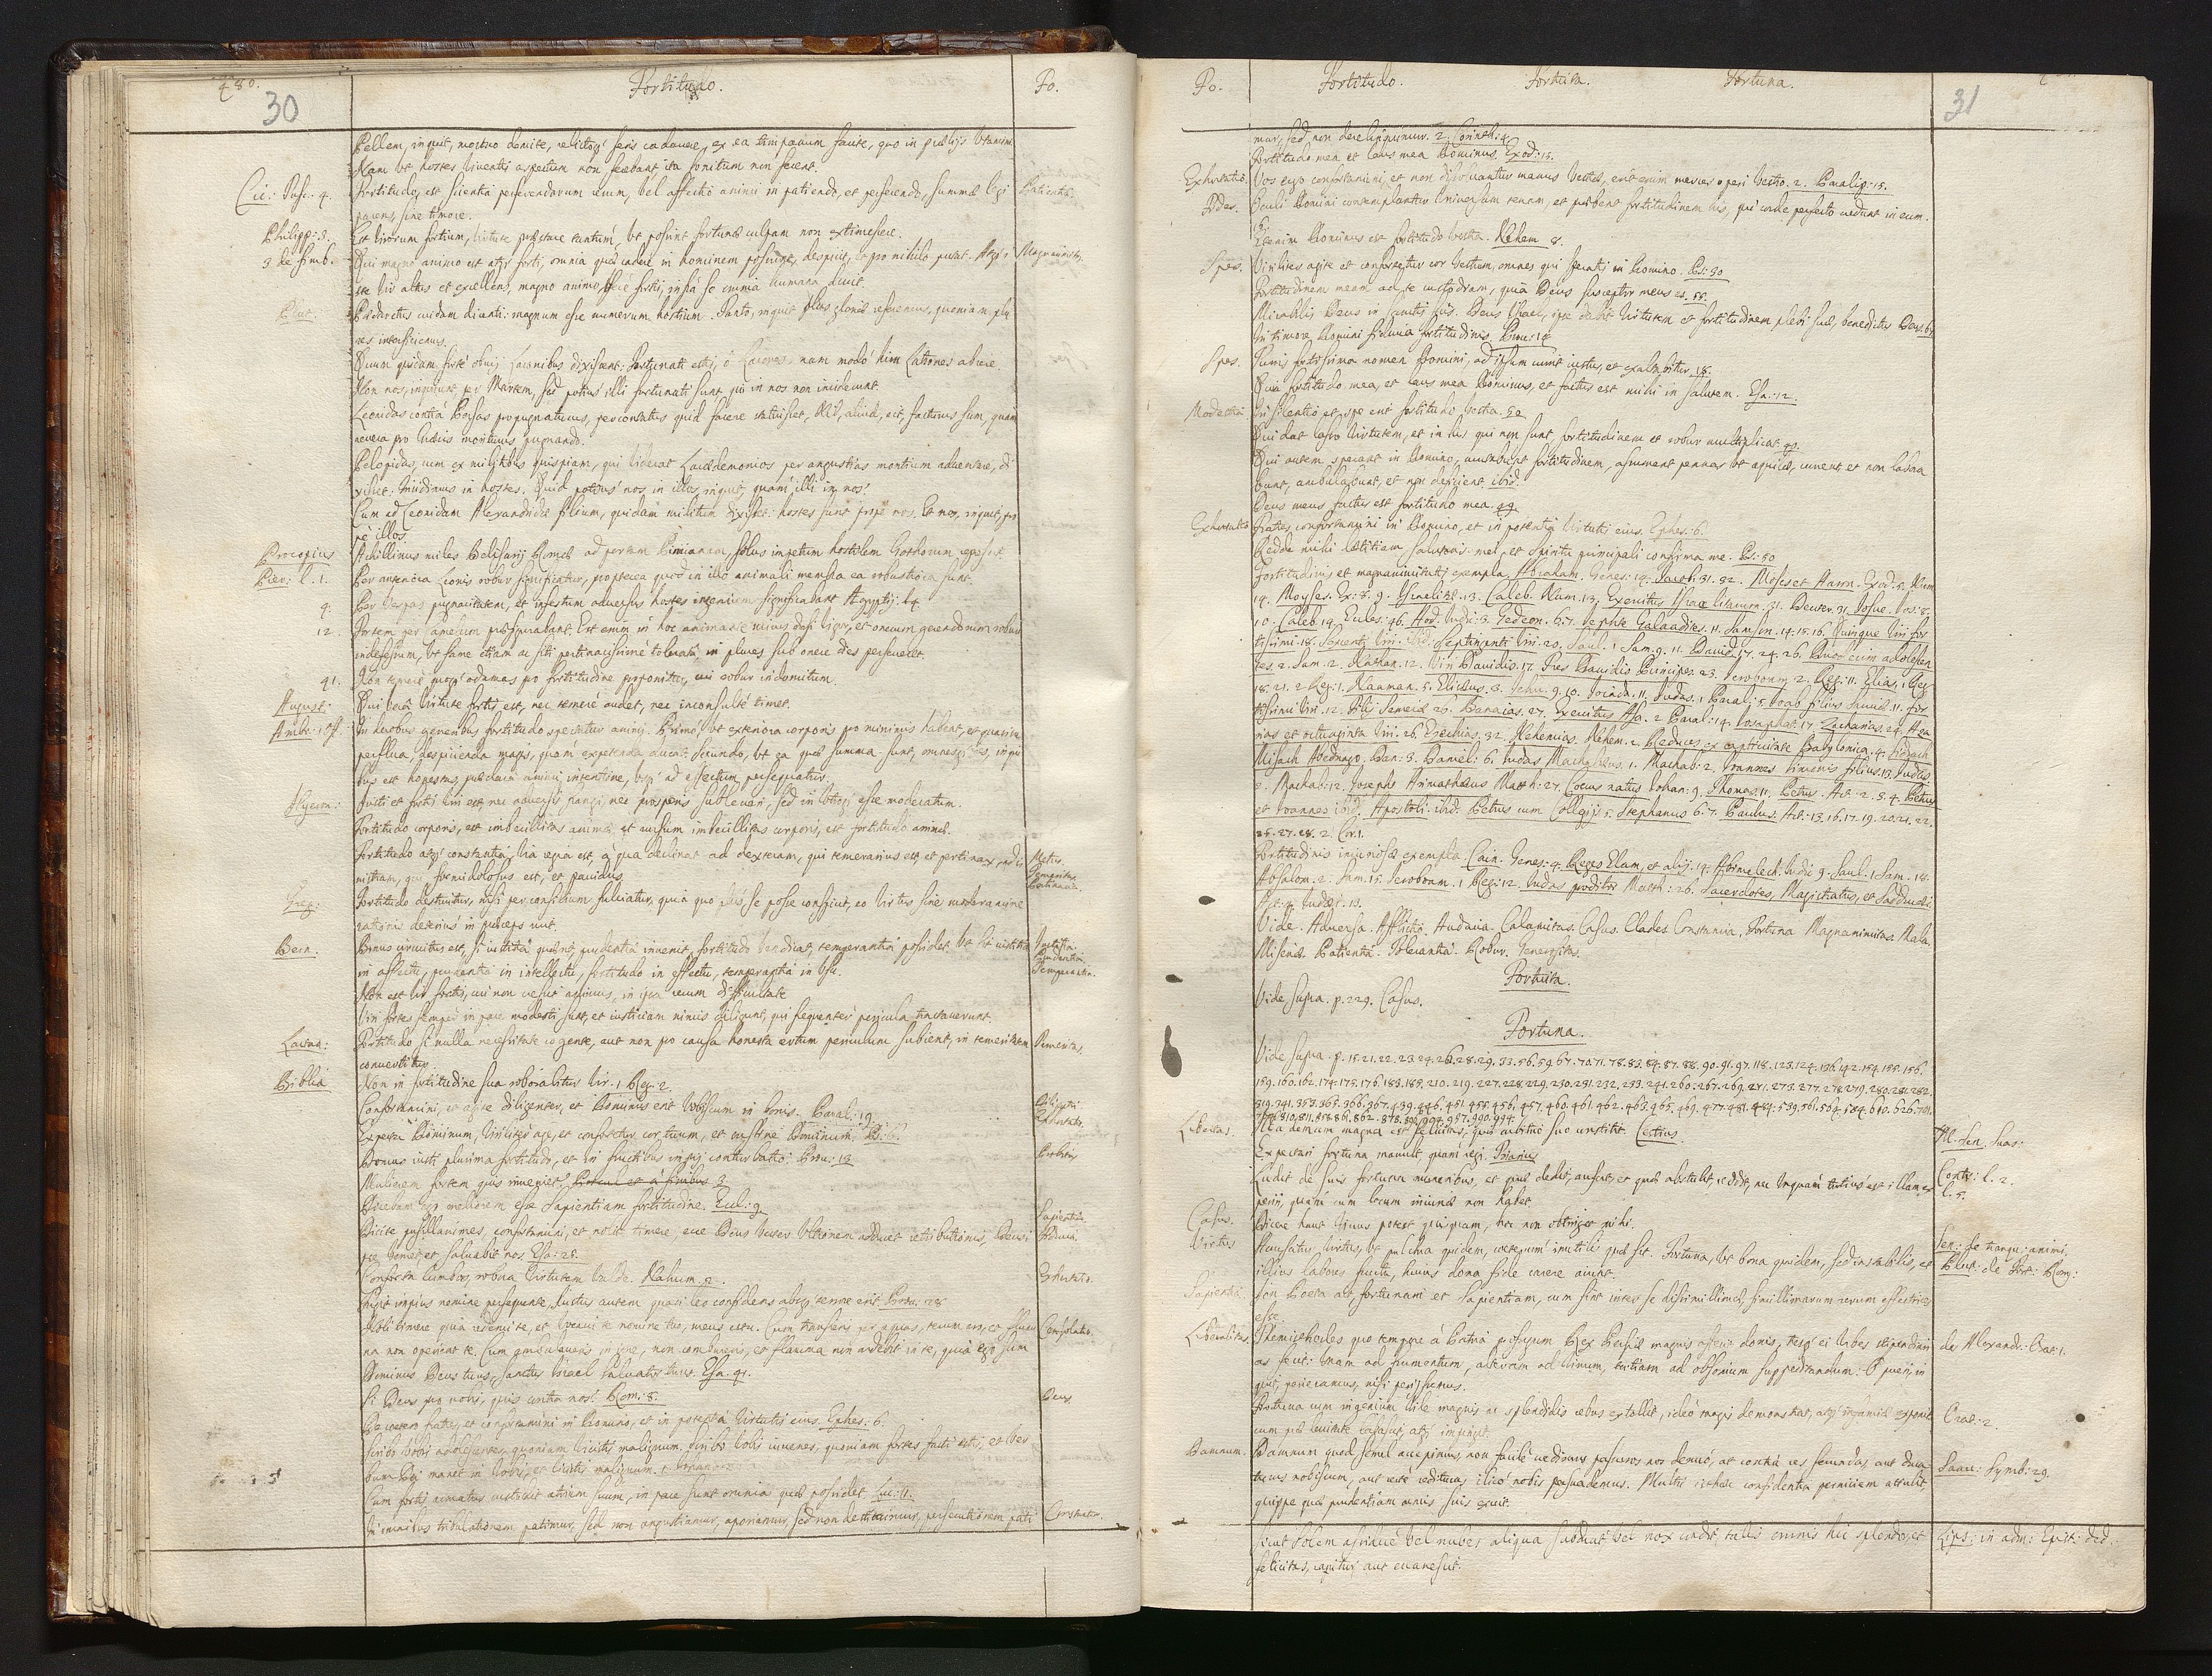 480.
30
Fortitudo.
Fo.
Pellem, inquit, nostro demite, relictoq; feris cadavere, ex ea timpanum facite, quo in prælijs utamini.
Nam ut hostes viventis aspectum non ferebant, ita sonitum non ferent.
Cic: Tusc: 4.
Fortitudo, est scientia perferendarum rerum, vel affectio animi in patiendo, et perferendo, summæ legi
Patientia.
parens, sine timore.
Philipp: 3.
Est virorum fortium, virtute præstare tantum, ut possint fortunæ culpam non extimescere.
3 de finib.
Qui magno animo est atq; forti, omnia quæ cadere in hominem possunt, despicit, et pro nihilo putat.
Magnanimitas.
esse vir altus et excellens, magno animo, vere fortis, infra se omnia humana ducit.
Plut:
Pædaretus cuidam dicenti: magnum esse numerum hostium. Tanto, inquit plus gloriæ referemus, quoniam plu
res interficiemus.
Quum quidam forte obvij Laconibus dixissent: Fortunati estis, ô Lacones, nam modò hinc Latrones abiere.
Non nos, inquiunt, per Martem, sed potius illi fortunati sunt, qui in nos non inciderunt.
Leonidas contra Persas propugnaturus, percontatus quid facere statuisset, Nil, aliud, ait, facturus sum, quam
revera pro Græcis moriturus pugnando.
Pelopidas, cum ex militibus quispiam, qui viderat Lacedemonios per angustias montium advenire, di
xisset: Incidimus in hostes. Quid potius nos in illos, inquit, quam illi in nos?
Cum ad Leonidam Alexandridæ filium, quidam militum dixisset: hostes sunt prope nos. Et nos, inquit, pro
pe illos.
Procopius
Achillinus miles Belisarij Romæ ad portam Pincianam, solus impetum hostilem Gothorum repressit.
Pier: l. 1.
Per anteriora Leonis robur significatur, propterea quod in illo animali membra ea robustiora sunt.
4.
Per vespas pugnacitatem, et infestum adversus hostes ingenium significabant Ægyptij.
12.
Fortem per camelum præfigurabant. Est enim in hoc animante mirus dorsi vigor, et onerum gerendorum robur
indefessum, ut famis etiam ac sitis pertinacissime tolerata, in plures sub onere dies perseveret.
41.
Non temere quoq; adamas pro fortitudine proponitur, cui robur indomitum.
August:
Qui vera virtute fortis est, nec temere audet, nec inconsulte timet.
Ambr: 1 off.
In duobus generibus fortitudo spectatur animi. Primo, ut exteriora corporis pro minimis habeat, et quasi su
perflua, despicienda magis, quam expetenda ducat. Secundo, ut ea quæ summa sunt, omnesq; res, in qui
bus est honestas, præclara animi intentione, usq; ad effectum persequatur.
Hyeron:
Justi et fortis viri est, nec adversis frangi, nec prosperis sublevari, sed in utroq; esse moderatum.
Fortitudo corporis, est imbecillitas animæ, et rursum imbecillitas corporis, est fortitudo animæ.
Fortitudo atq; constantia, via regia est, à qua declinat ad dexteram, qui temerarius est, et pertinax, ad si
Metus.
nistram, qui formidolosus est, et pavidus.
Temeritas.
Pertinacia.
Greg:
Fortitudo destruitur, nisi per consilium fulciatur, quia quo plus se posse conspicit, eo virtus sine moderamine
rationis deterius in præceps ruit.
Bern.
Bonus circuitus est, si iustitia quærit, prudentia invenit, fortitudo vendicat, temperantia possidet. Ut sit iustitia
Justitia.
Prudentia.
in affectu, prudentia in intellectu, fortitudo in effectu, temperantia in usu.
Temperantia.
Non est vir fortis, cui non crescit animus, in ipsa rerum difficultate
Viri fortes semper in pace modesti sunt, et iustitiam nimis diligunt, qui frequenter pericula tractaverunt.
Lactan:
Fortitudo si nulla necessitate cogente, aut non pro causa honesta certum periculum subierit, in temeritatem
Temeritas.
convertitur.
Biblia
Non in fortitudine sua roborabitur vir. 1 Reg: 2.
Confortamini, et agite diligenter, et Dominus erit vobiscum in bonis. Paral: 19
Exhortatio.
Expecta Dominum, viriliter age, et confortetur cor tuum, et sustine Dominum. Ps: 6.
Domus iusti plurima fortitudo, et in fructibus impij conturbatio. Prov: 15
Mulierem fortem quis inveniet? Procul et à finibus 3
Dicebam ego meliorem esse Sapientiam fortitudine. Eccl: 9
Sapientia.
Dicite pusillanimes, confortamini, et nolite timere, ecce Deus vester ultionem adducet retributionis, Deus i
pse veniet, et salvabit nos. Esa: 25.
Conforta lumbos, robora virtutem valde. Nahum 2.
Exhortatio.
Fugit impius nemine persequente, Justus autem quasi leo confidens absq; terrore erit. Prov: 28
Noli timere quia redemi te, et vocavi te nomine tuo, meus es tu. Cum transieris per aquas, tecum ero, et flumi
Consolatio.
na non operient te. Cum ambulaveris in igne, non combureris, et flamma non ardebit in te, quia ego sum
Dominus Deus tuus, Sanctus Israel Salvator tuus. Esa. 41.
Si Deus pro nobis, quis contra nos? Rom: 8.
Deus.
De cetero fratres, confortamini in Domino, et in potentia virtutis eius. Ephes: 6.
Scribo vobis adolescentes, quoniam vicistis malignum, scribo vobis iuvenes, quoniam fortes facti estis, et ver
bum Dei manet in vobis, et vicistis malignum. 1
Cum fortis armatus custodit atrium suum, in pace sunt omnia quæ possidet. Luc: 11.
In omnibus tribulationem patimur, sed non angustiamur, aporiamur, sed non destituimur, persecutionem pati
Constantia.
Fo.
Fortitudo.
Fortuita.
Fortuna.
31
mur, sed non derelinquimur. 2. Corinth: 4.
Fortitudo mea et laus mea Dominus. Exod: 15.
Exhortatio.
Vos ergo confortamini, et non dissolvantur manus vestræ, erit enim merces operi vestro. 2. Paralip: 15.
Fides.
Oculi Domini contemplantur universam terram, et præbent fortitudinem his, qui corde perfecto credunt in eum.
Etenim Dominus est fortitudo vestra. Nehem 8.
Spes.
Viriliter agite et confortetur cor vestrum, omnes qui speratis in Domino. Ps: 30
Fortitudinem meam ad te custodiam, quia Deus susceptor meus es. 58.
Mirabilis Deus in sanctis suis. Deus Israel, ipse dabit virtutem et fortitudinem plebi suæ, benedictus Deus. 67
In timore Domini fiducia fortitudinis. Prov: 14
Spes.
Turris fortissima nomen Domini, ad ipsum currit iustus, et exaltabitur. 18.
Quia fortitudo mea, et laus mea Dominus, et factus est mihi in salutem. Esa: 12.
Modestia
In silentio et spe erit fortitudo vestra. 30
Qui dat lasso virtutem, et in his qui non sunt, fortitudinem et robur multiplicat. 40.
Qui autem sperant in Domino, mutabunt fortitudinem, assument pennas ut aquilæ, current et non labora
bunt, ambulabunt, et non deficient. ibid.
Deus meus factus est fortitudo mea. 49
Exhortatio
Fratres, confortamini in Domino, et in potentia virtutis eius. Ephes: 6.
Redde mihi lætitiam salutaris mei, et spiritu principali confirma me. Ps: 50
Fortitudinis et magnanimitatis exempla. Abraham. Genes: 14. Jacob. 31. 32. Moses et Aaron. Exod: 5. Num
14. Moyses. Ex: 8. 9. Israelitæ. 13. Caleb. Num. 13. Exercitus Israelitarum. 31. Deuter. 31. Josue. Jos: 8.
10. Caleb. 14. Eccles: 46. Aod. Judic: 3. Gedeon. 6. 7. Jephte Galaadites. 11. Samson. 14. 15. 16. Quinque viri for
tissimi. 18. Sexcenti viri. ibid. Septingenti viri. 20. Saul. 1 Sam. 9. 11. David. 17. 24. 26. Duodecim adolescen
tes. 2. Sam. 2. Nathan. 12. Viri Davidis. 17. Tres Davidis Principes. 23. Jeroboam. 2. Reg: 11. Elias. 1 Reg:
18. 21. 2 Reg: 1. Naaman. 5. Elisæus. 3. Jehu. 9. 10. Joiada. 11. Judas. 1 Paral: 5. Joab filius Sarviæ. 11. For
tissimi viri. 12. Alij Semeiæ 26. Banaias. 27. Exercitus Asa. 2 Paral: 14. Josaphat. 17. Zacharias. 24. Aza
rias et octuaginta viri. 26. Ezechias. 32. Nehemias. Nehem. 2. Reduces ex captivitate Babylonica. 4. Sidrach
Misach Abednago. Dan: 3. Daniel: 6. Judas Machabæus. 1. Machab: 2. Joannes Simonis filius. 13. Judas
2. Machab: 12. Joseph Arimathæus Matth: 27. Cæcus natus Johan: 9. Thomas. 11. Petrus. Act. 2. 3. 4. Petrus
et Joannes ibid. Apostoli. ibid. Petrus cum Collegis 5. Stephanus 6. 7. Paulus. Act: 13. 16. 17. 19. 20. 21. 22.
25. 27. 28. 2. Cor. 1.
Fortitudinis iniuriosæ exempla. Cain. Genes: 4. Reges Elam, et alij. 14. Abimelech. Judic: 9. Saul. 1. Sam. 18.
Absalom. 2. Sam. 15. Jeroboam. 1 Reg: 12. Judas proditor Matth: 26. Sacerdotes, Magistratus, et Sadducæi.
Act: 4. Judæi. 13.
Vide. Adversa. Afflictio. Audacia. Calamitas. Casus. Clades. Constantia. Fortuna. Magnanimitas. Mala.
Miseria. Patientia. Tolerantia. Robur. Generositas.
Fortuita.
Vide supra. p. 229. Casus.
Fortuna.
Vide supra. p. 15. 21. 22. 23. 24. 26. 28. 29. 33. 56. 59. 67. 70. 71. 78. 83. 84. 87. 88. 90. 91. 97. 118. 123. 124. 136. 142. 154. 155. 156.
159. 160. 162. 174. 175. 176. 183. 185. 210. 219. 227. 228. 229. 230. 231. 232. 233. 241. 260. 267. 269. 271. 273. 277. 278. 279. 280. 281. 282.
319. 341. 353. 365. 366. 367. 439. 446. 451. 455. 456. 457. 460. 461. 462. 463. 465. 469. 477. 481. 484. 539. 561. 564. 584. 610. 626. 701.
Libertas.
Illa demum magna est felicitas, quæ arbitrio suo constitit. Cestius.
M. Sen. Suas:
Expectari fortuna mavult quam regi. Triarius
Contr: l. 2.
Ludit de suis fortuna muneribus, et quæ dedit, aufert, et quæ abstulit, reddit, nec unquam tutius est illam ex
l. 5.
periri, quam cum locum iniuria non habet.
Casus.
Dicere haud unus potest quisquam, hoc non obtinget mihi.
Sen: de tranqu: animi.
Virtus
illius labores fructu, huius dona fide carere aiunt.
Plut: de Fort: Rom:
Sapientia
Ion Poeta ait, fortunam et sapientiam, cum sint inter se dissimillimæ, simillimarum rerum effectrices
esse.
Liberalitas.
Themistocles, quo tempore à Patria profugum Rex Persæ magnis affecit donis, tresq; ei urbes stipendiari
de Alexandr: Orat: 1.
as fecit: unam ad frumentum, alteram ad vinum, tertiam ad obsonium suppeditandum: O pueri, in
quit, perieramus, nisi perijssemus.
Fortuna cum ingenium vile magnis ac splendidis rebus extollit, ideo magis demonstrat, atq; infamiæ exponit
Orat: 2.
cum præ levitate labascit, atq; impingit.
Damnum.
Damnum quod semel accepimus, non facile credimus passuros nos denuo, at contra res secundas aut dura
Saavr: Symb: 29.
turas nobiscum, aut certe redituras ilico nobis persuademus. Multis isthæc confidentia perniciem attulit,
quippe quæ prudentiam armis suis exuit.
sicut Solem assidue vel nubes aliqua subducit vel nox condit, talis omnis hic splendor, et
Lips: in adm: Epist: ded.
felicitas, rapitur aut evanescit.